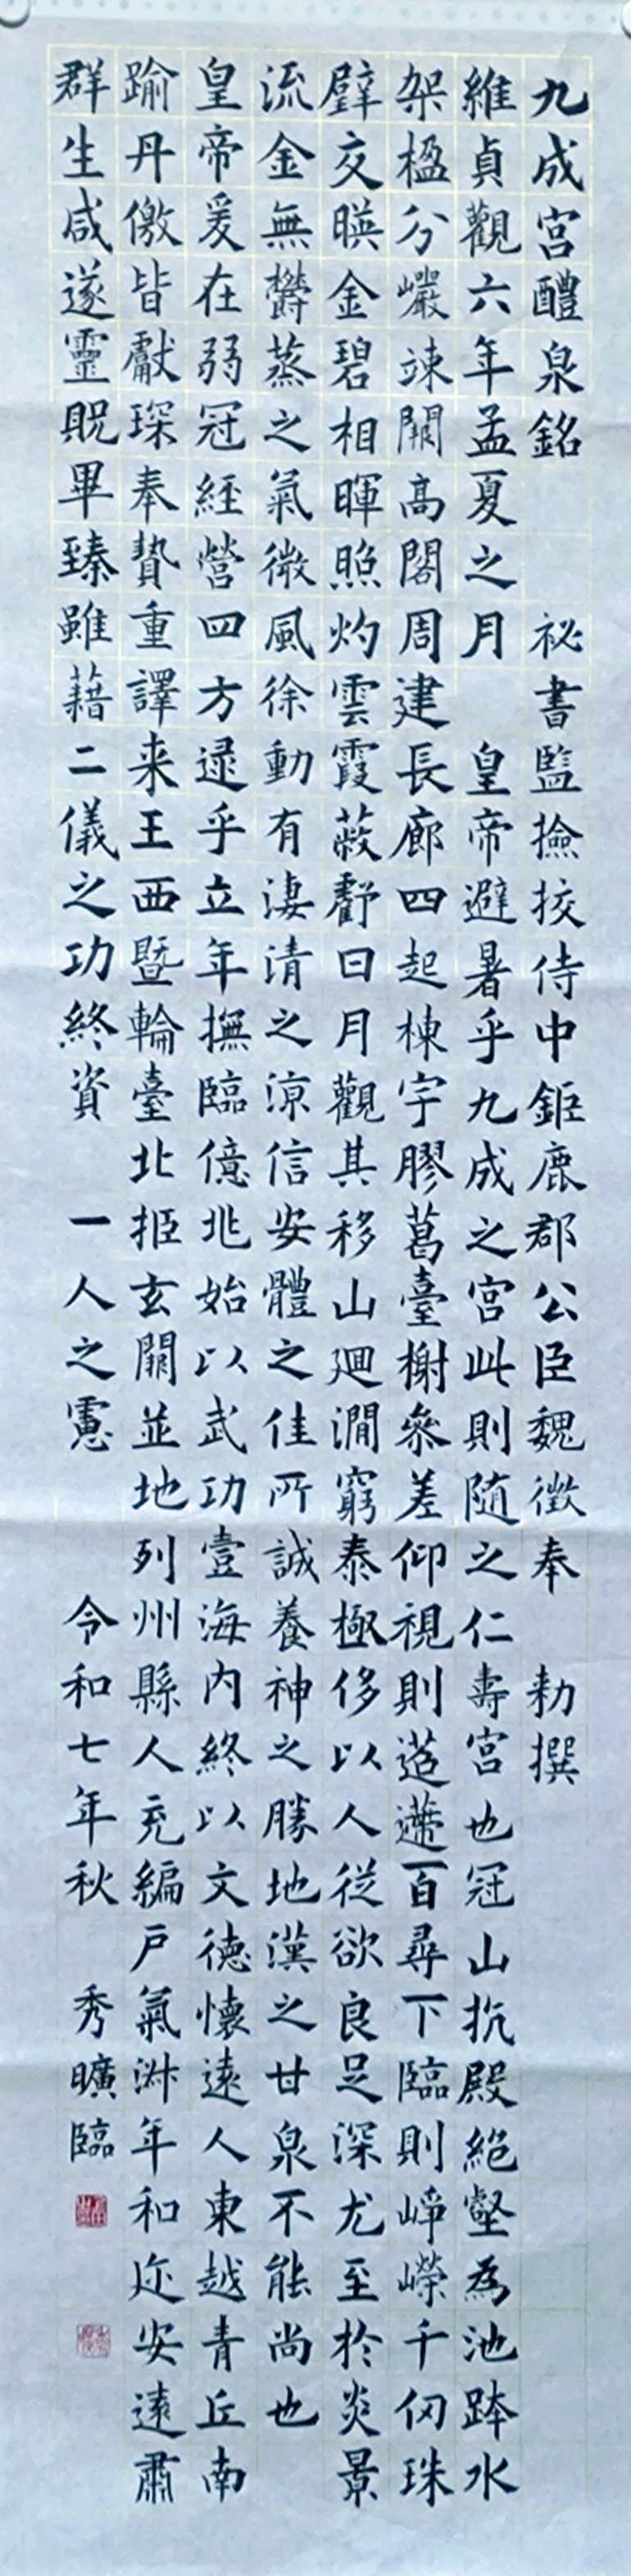 九成宮醴泉銘　祕書監撿挍侍中鉅鹿郡公臣魏徵奉　勅撰
維貞觀六年孟夏之月　皇帝避暑乎九成之宮此則隨之仁壽宮也冠山抗殿絕壑為池跨水
架楹分巖竦闕高閣周建長廊四起棟宇膠葛臺榭叅差仰視則迢遰百尋下臨則崢嶸千仞珠
璧交暎金碧相暉照灼雲霞蔽虧日月觀其移山廻澗窮泰極侈以人從欲良足深尤至於炎景
流金無鬱蒸之氣微風徐動有淒清之涼信安體之佳所誠養神之勝地漢之甘泉不能尚也
皇帝爰在弱冠經營四方逯乎立年撫臨億兆始以武功壹海內終以文德懷遠人東越青丘南
踰丹儌皆獻琛奉贄重譯来王西暨輪臺北拒玄闕並地列州縣人充編戶氣淑年和迩安遠肅
群生咸遂靈貺畢臻雖藉二儀之功終資　一人之慮　令和七年秋　秀曠臨